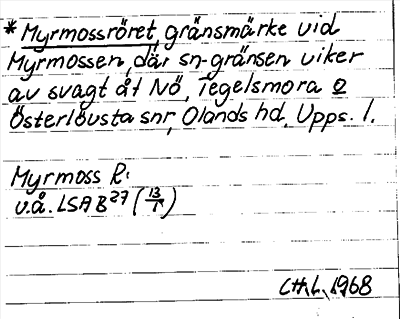 * Myrmossröret, gränsmärke vid
Myrmossen, där sn-gränsen viker
av svagt åt NÖ, Tegelsmora o
Österlövsta snr, Olands hd, Upps. l.
Myrmoss R:
v.å. LSA B27 (13/1)
CH.L. 1968